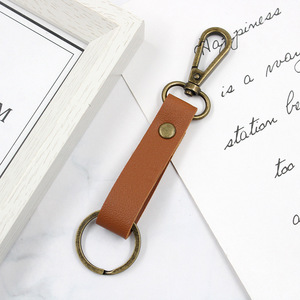 M
Happiness
is a way
station be
too
a